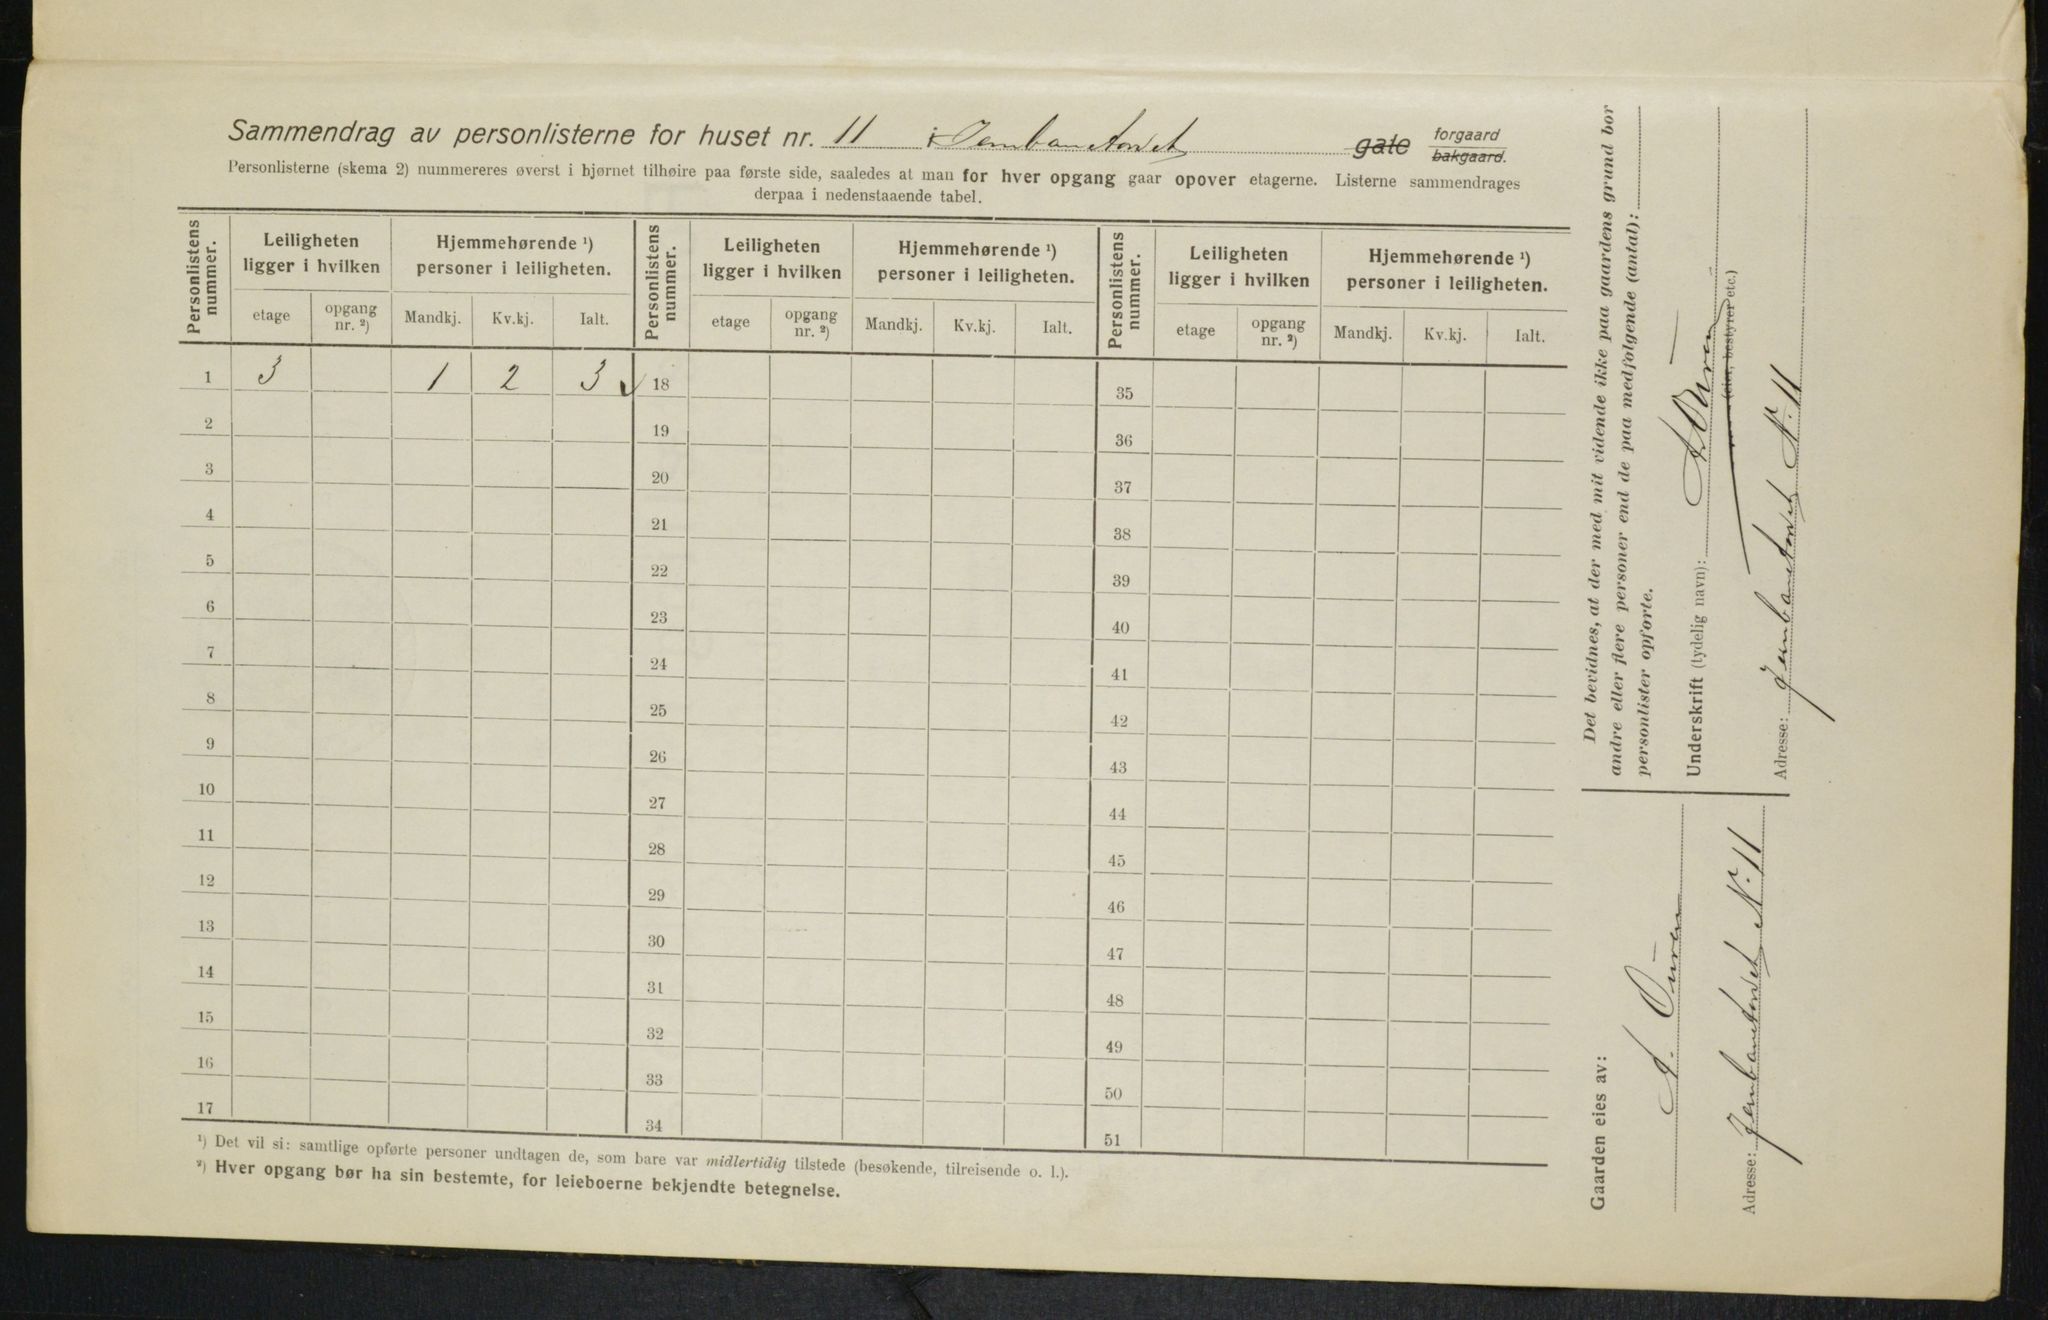 Sammendrag av personlisterne for huset nr. 11 i Jernbanetorvet gate forgaard bakgaard.
Personlisterne (skema 2) nummereres øverst i hjørnet tilhøire paa første side, saaledes at man for hver opgang gaar opover etagerne. Listerne sammendrages
derpaa i nedenstaaende tabel.
Personlistens nummer. Leiligheten ligger i hvilken Hjemmehørende ¹) personer i leiligheten. Personlistens nummer. Leiligheten ligger i hvilken Hjemmehørende ¹) personer i leiligheten. Personlistens nummer. Leiligheten ligger i hvilken Hjemmehørende ¹) personer i leiligheten.
etage opgang nr. ²) Mandkj. Kv.kj. Ialt. etage opgang nr. ²) Mandkj. Kv.kj. Ialt. etage opgang nr. ²) Mandkj. Kv.kj. Ialt.
1 3 1 2 3 18 35
2 19 36
3 20 37
4 21 38
5 22 39
6 23 40
7 24 41
8 25 42
9 26 43
10 27 44
11 28 45
12 29 46
13 30 47
14 31 48
15 32 49
16 33 50
17 34 51
¹) Det vil si: samtlige opførte personer undtagen de, som bare var midlertidig tilstede (besøkende, tilreisende o. l.).
²) Hver opgang bør ha sin bestemte, for leieboerne bekjendte betegnelse.
Det bevidnes, at der med mit vidende ikke paa gaardens grund bor
andre eller flere personer end de paa medfølgende (antal):
personlister opførte.
Underskrift (tydelig navn):
(eier, bestyrer etc.)
Adresse: Jernbanetorvet N. 11
Gaarden eies av:
Adresse: Jernbanetorvet N. 11